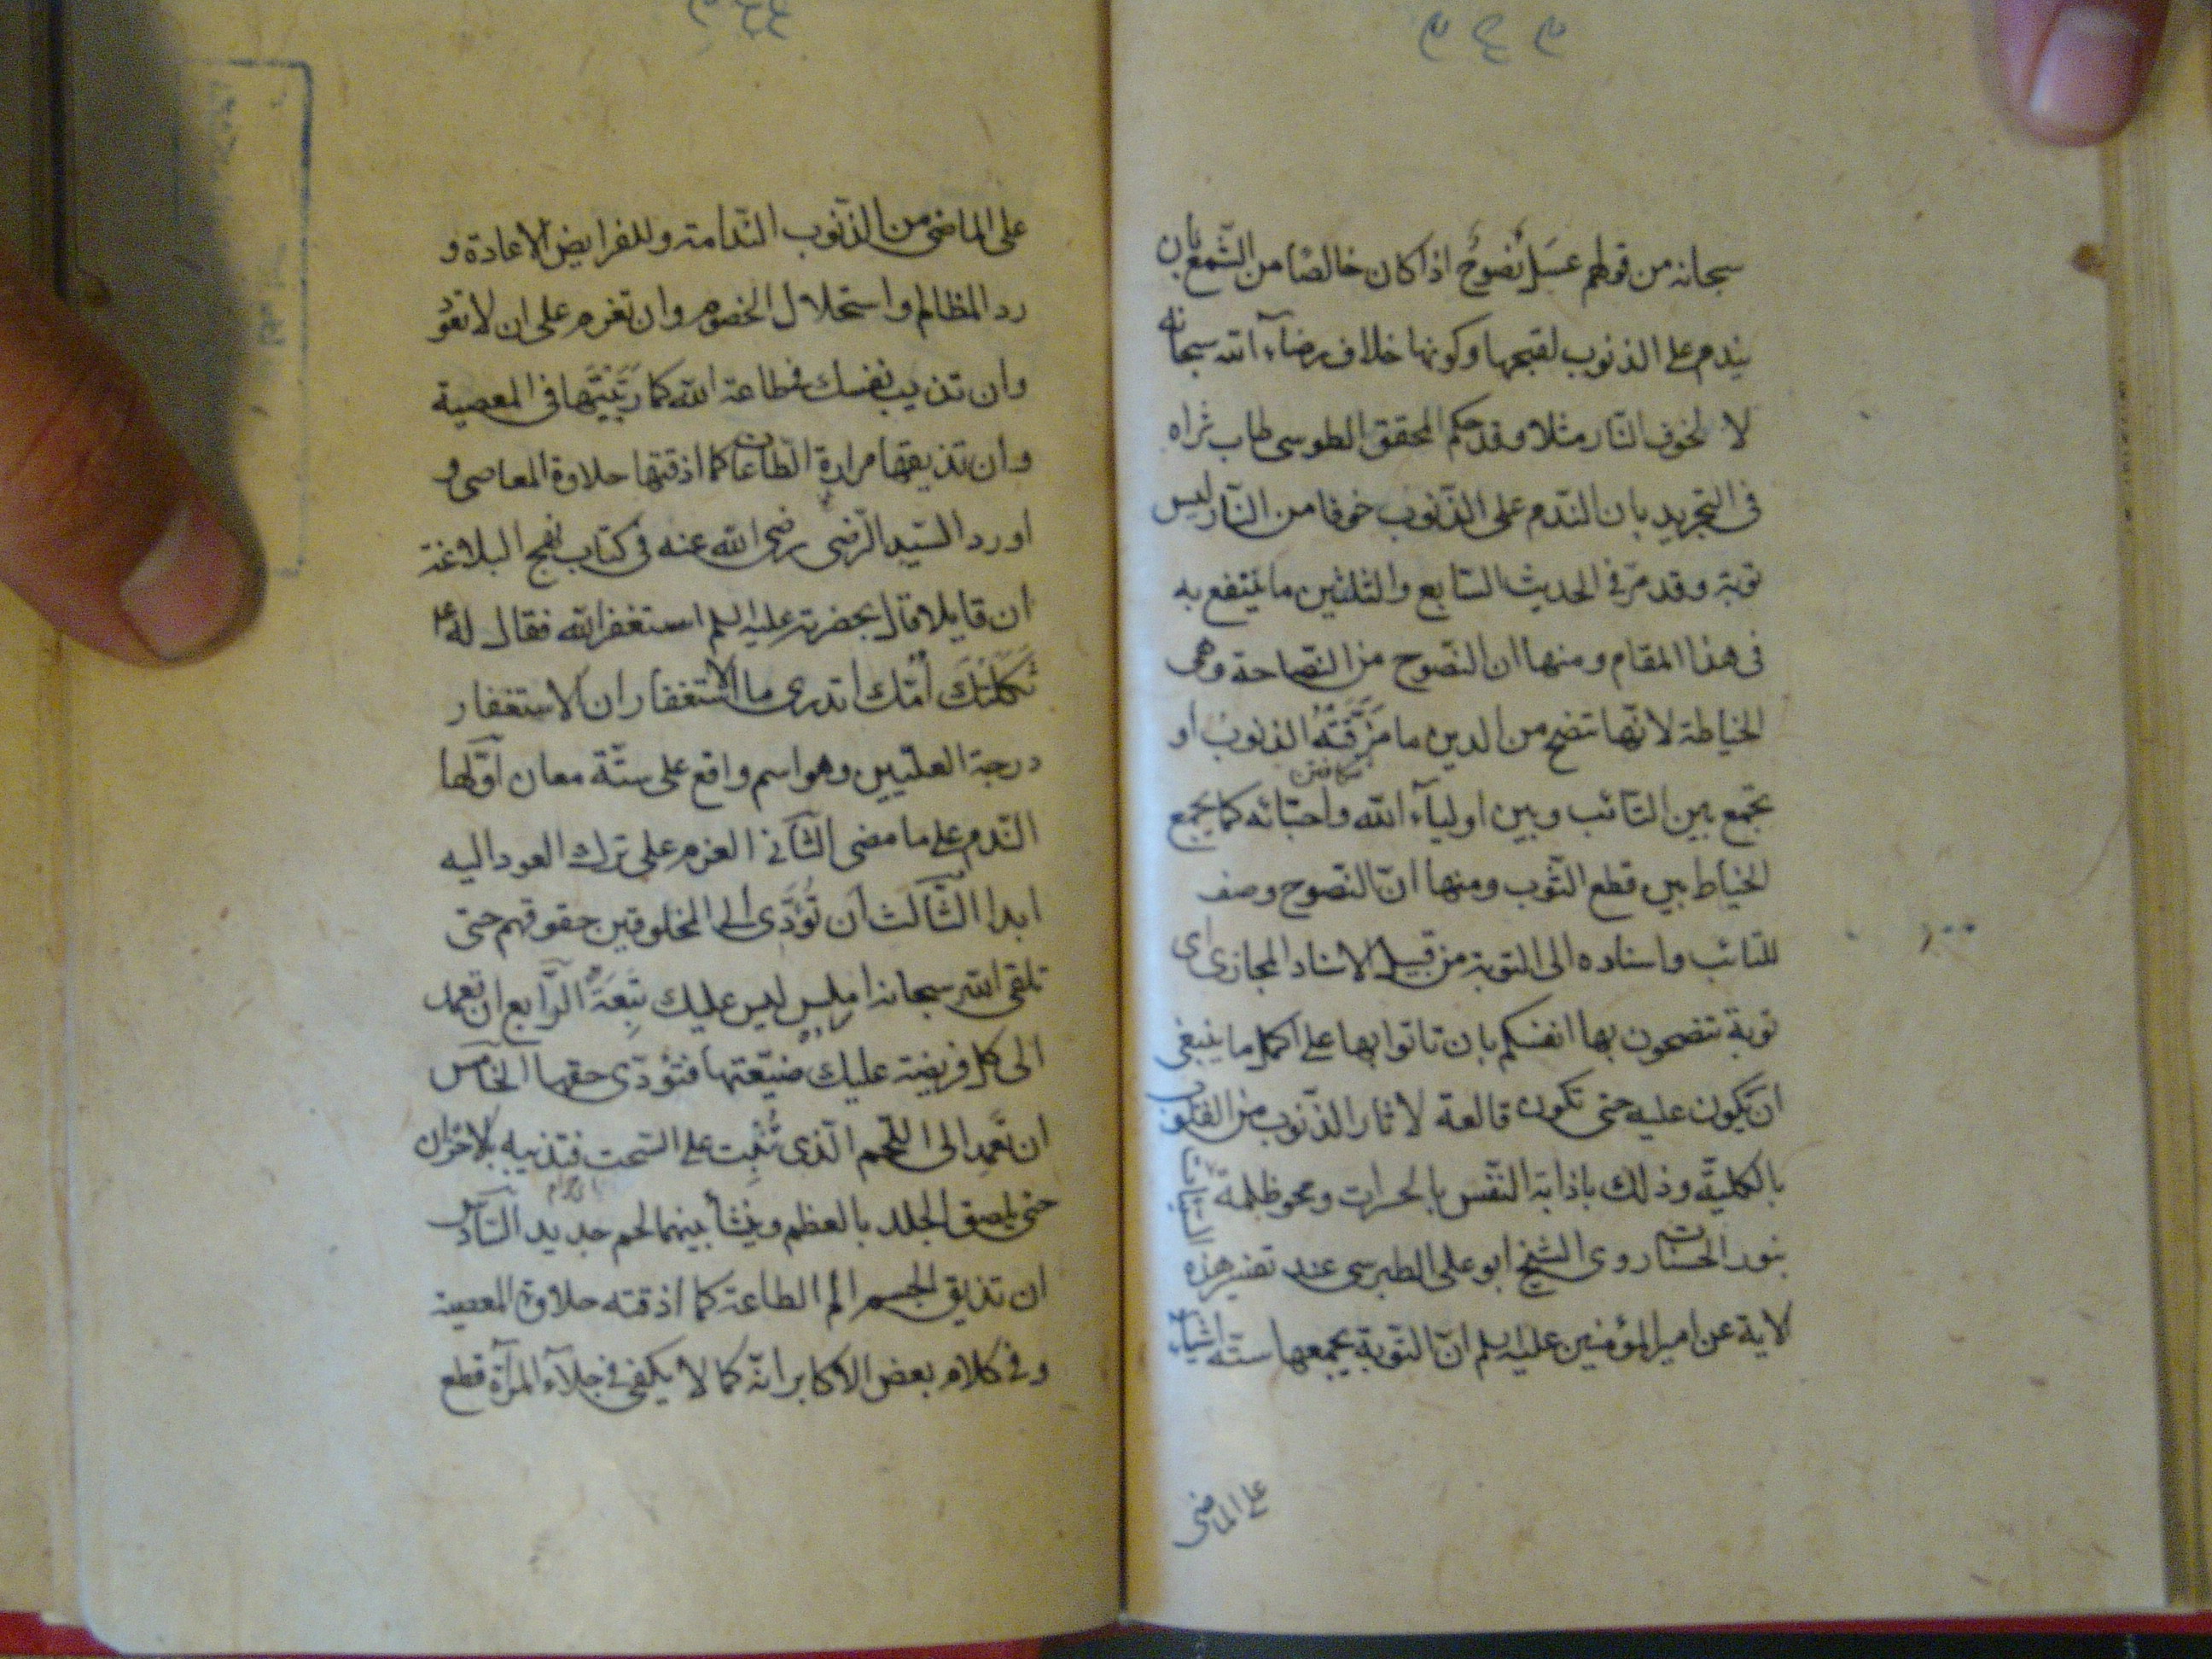 سبحانه من قولهم عَسَلٌ نُصُوحٌ اذا كان خالصًا من الشّمع بان
يندم على الذنوب لقبحها وكونها خلاف رضآء الله سبحانه
لا لخوف النّار مثلا وقد حكم المحقق الطوسى طاب ثراه
فى التجريد بان النّدم على الذّنوب خوفا من النّار ليس
توبة وقد مرّ فى الحديث السّابع والثلثين ما ينتفع به
فى هذا المقام ومنها ان النّصوح من النّصاحة وهى
الخياطة لانّها تنصح من الدين ما مَزَّقَتْهُ الذنوبُ او
تجمع بين التائب وبين اوليآء الله واحبّائه كما يجمع
الخياط بين قطع الثّوب ومنها انّ النّصوح وصف
للتائب واسناده الى التوبة من قبيل الاسناد المجازى اى
توبة تنصحون بها انفسكم بان تاتوا بها على اكمل ما ينبغى
ان تكون عليه حتى تكون قالعة لاثار الذّنوب من القلوب
بالكليّة وذلك باذابة النّفس بالحسرات ومحو ظلمة السّيّئات
بنور الحسنات روى الشيخ ابو على الطبرسى عند تفسير هذه
الاية عن امير المؤمنين عليه السلم انّ التّوبة يجمعها ستّة اشيآء
على الماضى
على الماضى من الذّنوب النّدامة وللفرايض الاعادة و
رد المظالم واستحلال الخصوم وان تعزم على ان لا تعود
وان تذيب نفسك فى طاعة الله كما رَبَّيْتَها فى المعصية
وان تذيقها مرارة الطّاعات كما اذقتها حلاوة المعاصى و
اورد السّيد الرّضى رضى الله عنه فى كتاب نهج البلاغة
ان قايلا قال بحضرته عليه السلم استغفر الله فقال له ع
ثَكَلَتْكَ اُمّك اتدرى ما الاستغفار ان الاستغفار
درجة العلّيّين وهو اسم واقع على ستّة معان اوّلها
النّدم على ما مضى الثّانى العزم على ترك العود اليه
ابدا الثّالث ان تُؤدَّى الى المخلوقين حقوقهم حتى
تلقى الله سبحانه املس ليس عليك تَبِعَةٌ الرّابع ان تعمد
الى كل فريضة عليك ضيّعتها فتؤدّى حقها الخامس
ان تَعْمِد الى اللّحم الّذى نَبَت على السّحت فتذيبه بالاحزان
حتى يلصق الجلد بالعظم وينشأ بينهما لحم جديد السّادس
ان تذيق الجسم الم الطاعة كما اذقته حلاوة المعصية
وفى كلام بعض الاكابر انّه كما لا يكفى فى جلآء المرآة قطع